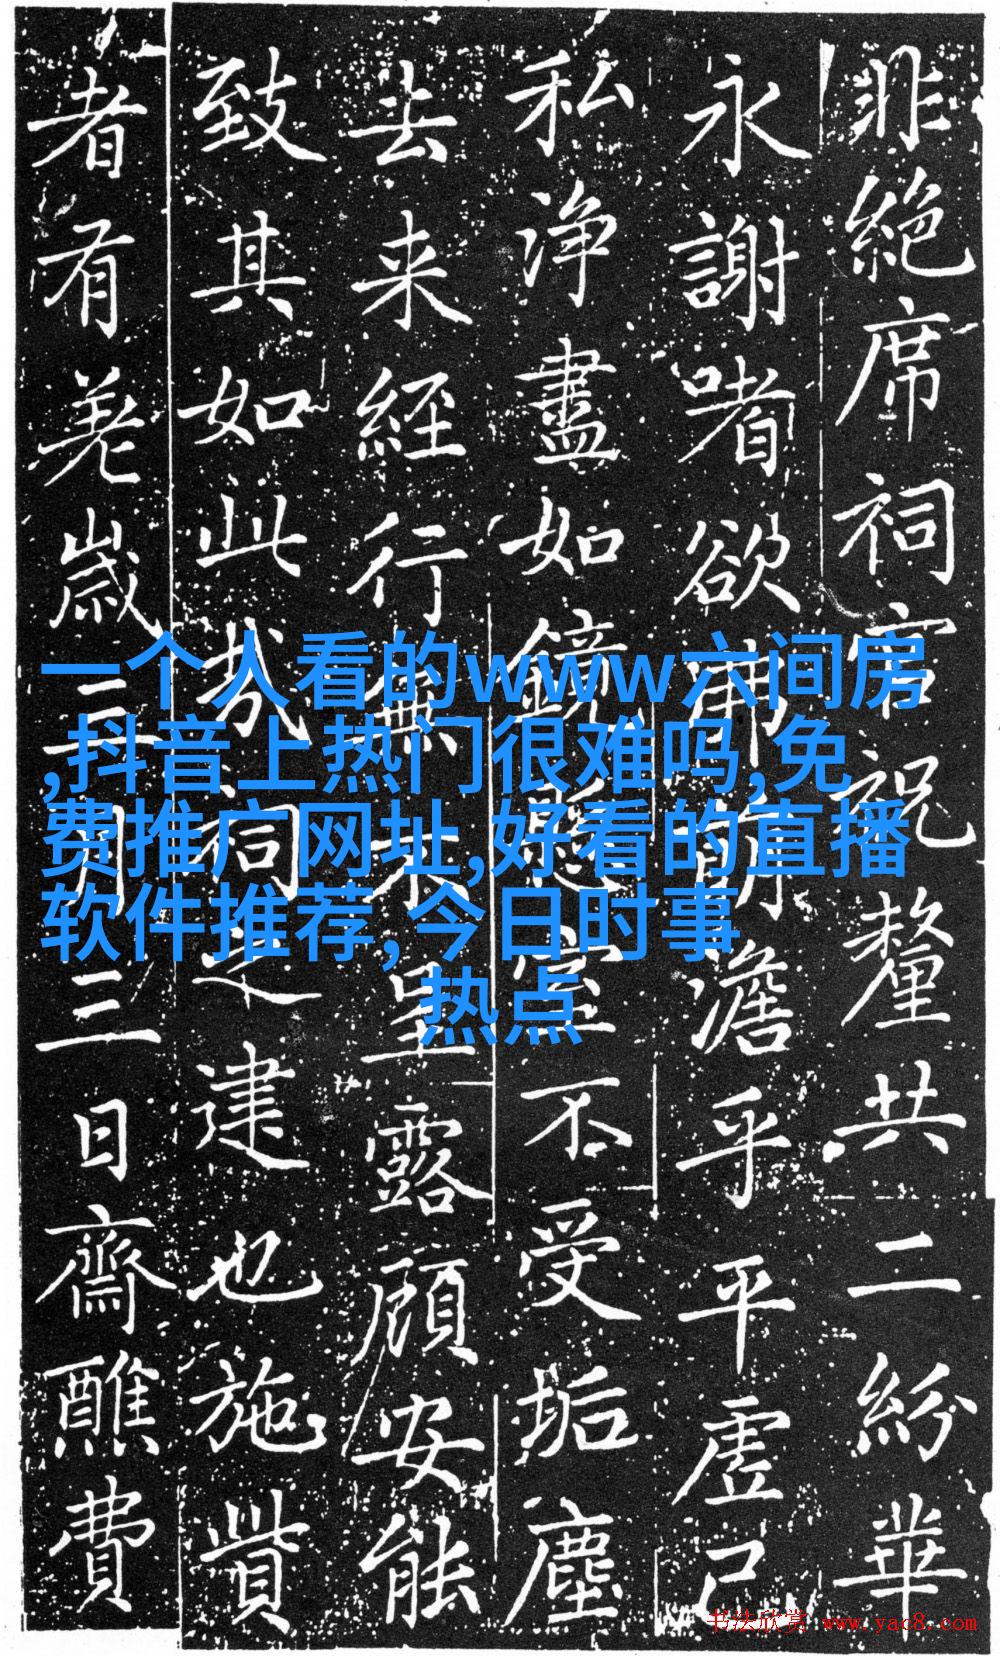 非絶席祠官祝釐共二紛華
永謝嗜欲澹乎平虛己
私淨盡如鏡不受垢塵
去来經行無顧安能
致其如此哉祠之建也施貲
者有羌歲三月三日齋醮費
一个人看的www六间房
,抖音上热门很难吗,免
费推广网址,好看的直播
软件推荐,今日时事
热点
书法欣赏 www.yac8.com